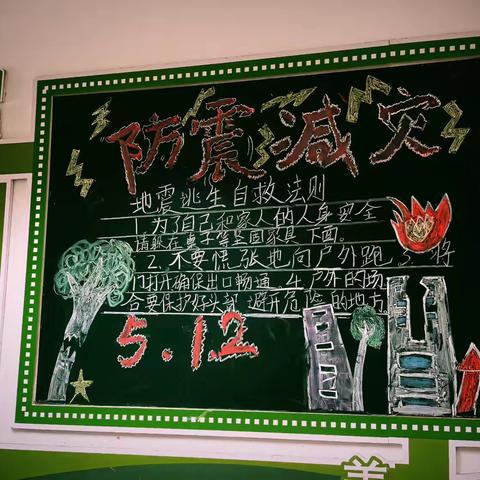 防震减灾
地震逃生自救法则
1.为了自己和家人的人身安全
请躲在桌子等坚固家具下面。
2.不要慌张地向户外跑 3.将
门打开确保出口畅通 4.户外的场
合要保护好头部 避开危险的地方。
5.12